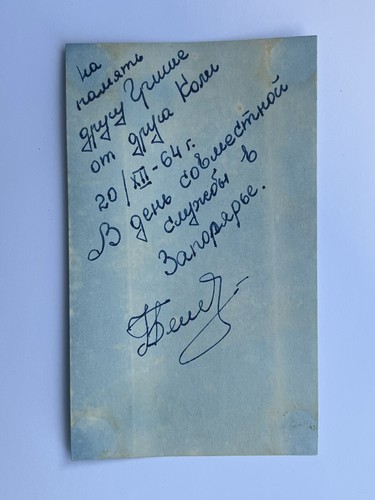 на
память
другу Грише
от друга Коли
20/XII-64 г.
В день совместной
службы в
Запорярье.